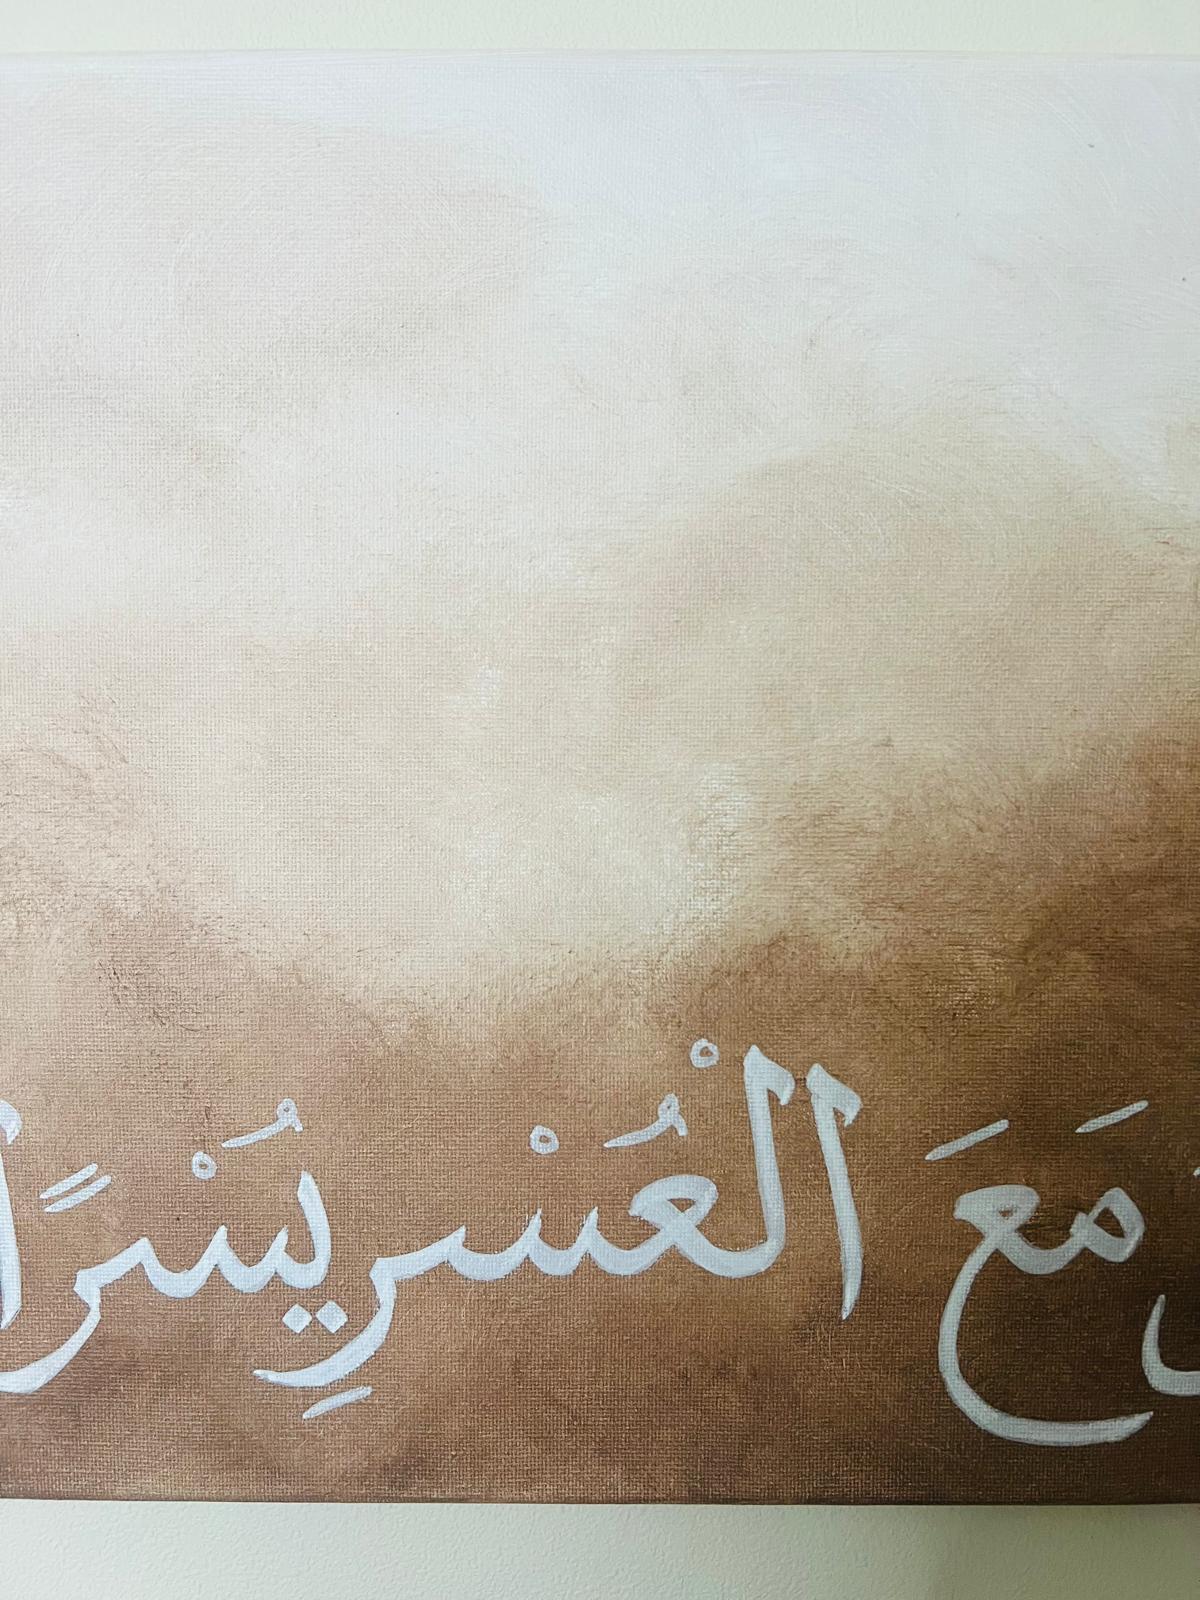 مَعَ الْعُسْرِ يُسْرًا